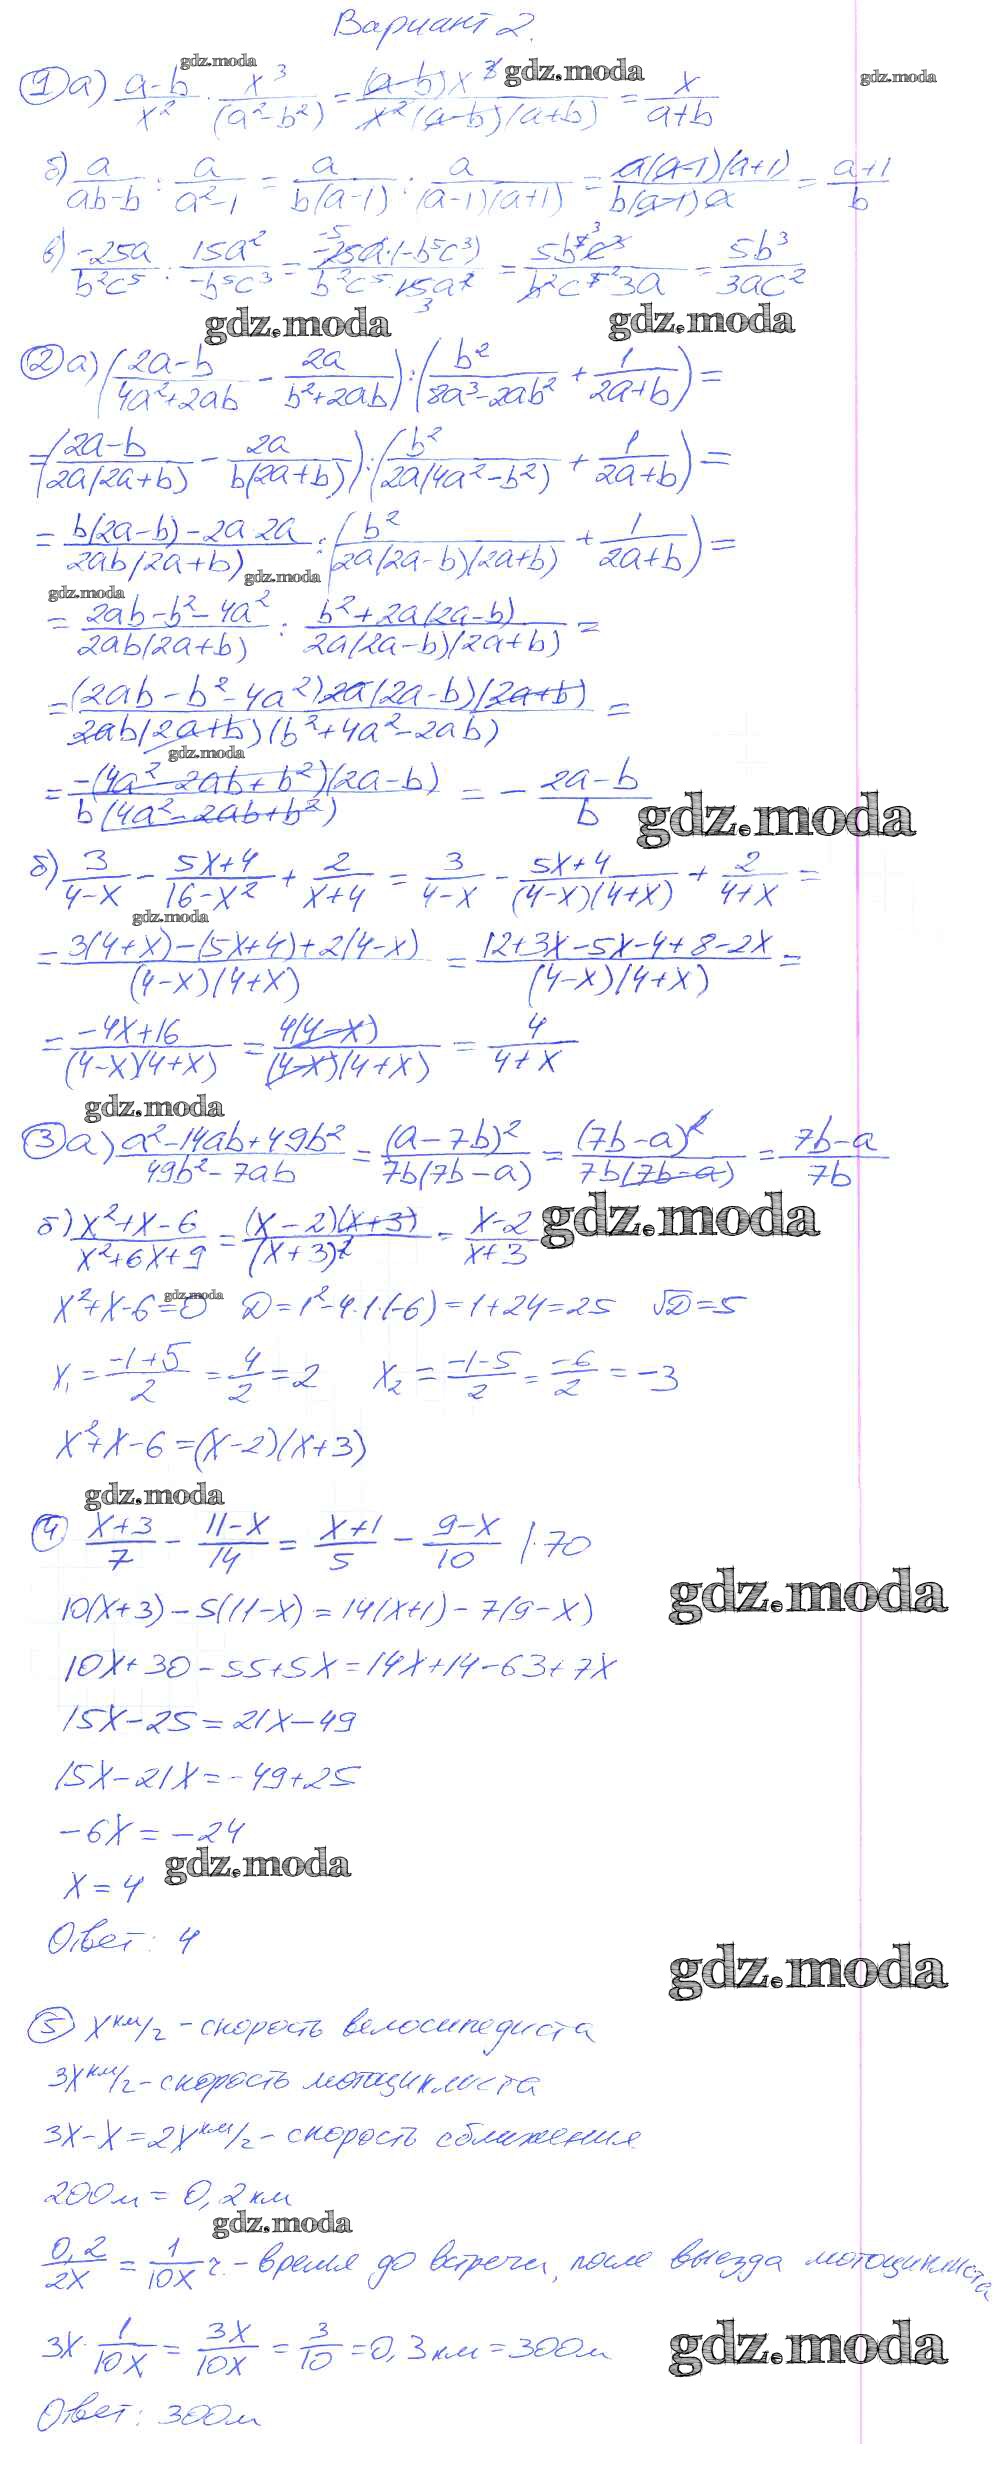 Вариант 2.
gdz.moda gdz.moda gdz.moda
① а) (a-b)/x² · x³/(a²-b²) = (a-b)x³/(x²(a-b)(a+b)) = x/(a+b)
б) a/(ab-b) : a/(a²-1) = a/(b(a-1)) : a/((a-1)(a+1)) = a(a-1)(a+1)/(b(a-1)a) = (a+1)/b
в) -25a/(b²c⁵) : 15a²/(-b⁵c³) = -25a·(-b⁵c³)/(b²c⁵·15a²) = 5b⁵c³/(b²c⁵3a) = 5b³/(3ac²)
gdz.moda gdz.moda
② а) ((2a-b)/(4a²+2ab) - 2a/(b²+2ab)) : (b²/(8a³-2ab²) + 1/(2a+b)) =
= ((2a-b)/(2a(2a+b)) - 2a/(b(2a+b))) : (b²/(2a(4a²-b²)) + 1/(2a+b)) =
= (b(2a-b)-2a·2a)/(2ab(2a+b)) : (b²/(2a(2a-b)(2a+b)) + 1/(2a+b)) =
gdz.moda gdz.moda
= (2ab-b²-4a²)/(2ab(2a+b)) : (b²+2a(2a-b))/(2a(2a-b)(2a+b)) =
= (2ab-b²-4a²)2a(2a-b)(2a+b)/(2ab(2a+b)(b²+4a²-2ab)) =
gdz.moda
= -(4a²-2ab+b²)(2a-b)/(b(4a²-2ab+b²)) = - (2a-b)/b
gdz.moda
б) 3/(4-x) - (5x+4)/(16-x²) + 2/(x+4) = 3/(4-x) - (5x+4)/((4-x)(4+x)) + 2/(4+x) =
gdz.moda
= (3(4+x)-(5x+4)+2(4-x))/((4-x)(4+x)) = (12+3x-5x-4+8-2x)/((4-x)(4+x)) =
= (-4x+16)/((4-x)(4+x)) = 4(4-x)/((4-x)(4+x)) = 4/(4+x)
gdz.moda
③ а) (a²-14ab+49b²)/(49b²-7ab) = (a-7b)²/(7b(7b-a)) = (7b-a)²/(7b(7b-a)) = (7b-a)/7b
б) (x²+x-6)/(x²+6x+9) = (x-2)(x+3)/(x+3)² = (x-2)/(x+3)
gdz.moda
gdz.moda
x²+x-6=0 D=1²-4·1·(-6)=1+24=25 √D=5
x₁ = (-1+5)/2 = 4/2 = 2 x₂ = (-1-5)/2 = -6/2 = -3
x²+x-6=(x-2)(x+3)
gdz.moda
④ (x+3)/7 - (11-x)/14 = (x+1)/5 - (9-x)/10 |·70
gdz.moda
10(x+3)-5(11-x)=14(x+1)-7(9-x)
10x+30-55+5x=14x+14-63+7x
15x-25=21x-49
15x-21x=-49+25
-6x=-24
gdz.moda
x=4
Ответ: 4
gdz.moda
⑤ x км/г - скорость велосипедиста
3x км/г - скорость мотоциклиста
3x-x=2x км/г - скорость сближения
200м = 0,2км
gdz.moda
0,2/2x = 1/10x г. - время до встречи, после выезда мотоциклиста
3x·1/10x = 3x/10x = 3/10 = 0,3км = 300м
gdz.moda
Ответ: 300м